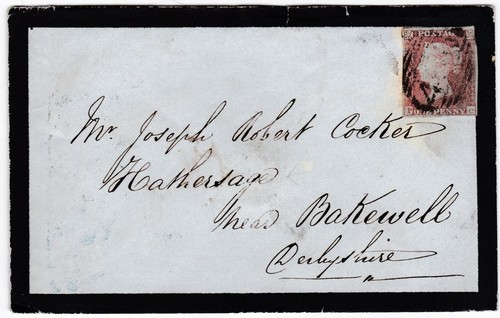 POSTAGE
ONE PENNY
Mr. Joseph Robert Cocker
Hathersage
near Bakewell
Derbyshire